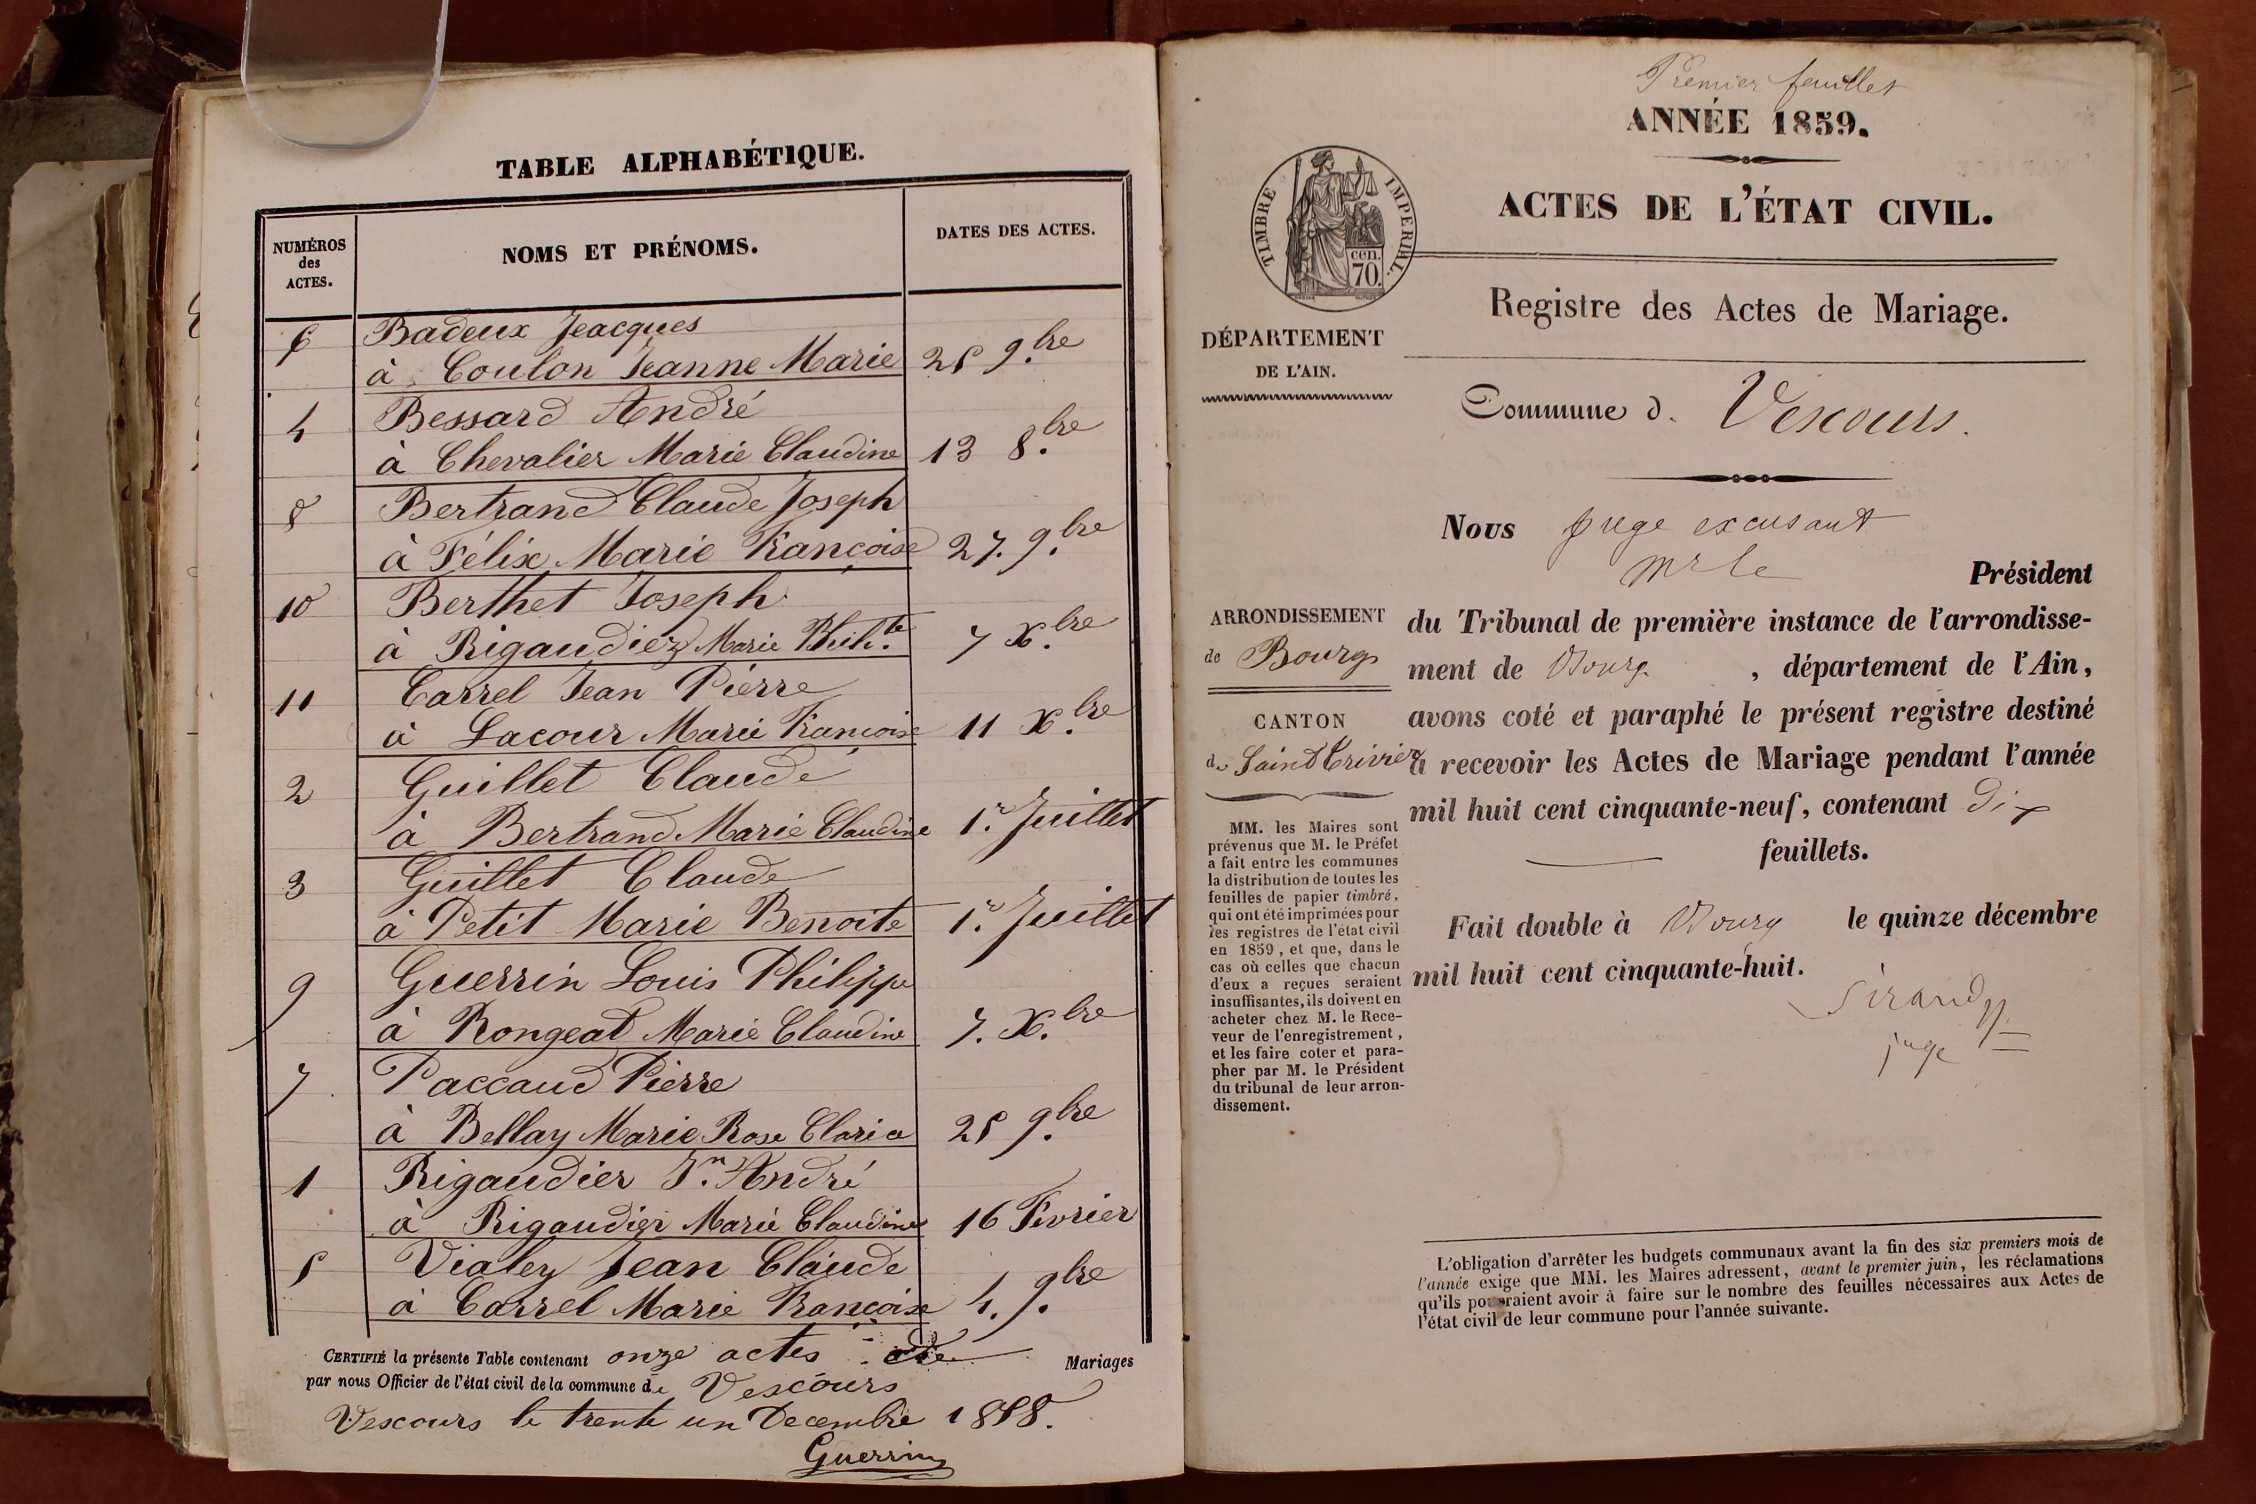 TABLE ALPHABÉTIQUE.
NUMÉROS des ACTES.
NOMS ET PRÉNOMS.
DATES DES ACTES.
6 Badeux Jeacques
à Coulon Jeanne Marie 25 9.bre
4 Bessard André
à Chevalier Marie Claudine 13 8.bre
8 Bertrand Claude Joseph
à Félix Marie Françoise 27. 9.bre
10 Berthet Joseph
à Rigaudier Marie 7 X.bre
11 Carrel Jean Pierre
à Lacour Marie Françoise 11 X.bre
2 Guillet Claude
à Bertrand Marie Claudine 1.r Juillet
3 Guillet Claude
à Petit Marie Benoite 1.r Juillet
9 Guerrin Louis Philippe
à Rongeat Marie Claudine 7. X.bre
7 Paccaud Pierre
à Bellay Marie Rose Claric 25 9.bre
1 Rigaudier J.n André
à Rigaudier Marie Claudine 16 Fevrier
5 Vialey Jean Claude
à Carrel Marie Françoise 4. 9.bre
CERTIFIÉ la présente Table contenant onze actes de Mariages
par nous Officier de l'état civil de la commune de Vescours
Vescours le trente un Decembre 1858.
Guerrin
Premier feuillet
ANNÉE 1859.
TIMBRE IMPERIAL.
cen.
70.
ACTES DE L'ÉTAT CIVIL.
Registre des Actes de Mariage.
DÉPARTEMENT
DE L'AIN.
Commune d. Vescours.
Nous juge excusant
mr le Président
ARRONDISSEMENT
de Bourg
CANTON
de Saint Trivier
du Tribunal de première instance de l'arrondisse-
ment de Bourg , département de l'Ain,
avons coté et paraphé le présent registre destiné
à recevoir les Actes de Mariage pendant l'année
mil huit cent cinquante-neuf, contenant dix
feuillets.
Fait double à Bourg le quinze décembre
mil huit cent cinquante-huit.
Sirand
juge
MM. les Maires sont
prévenus que M. le Préfet
a fait entre les communes
la distribution de toutes les
feuilles de papier timbré,
qui ont été imprimées pour
les registres de l'état civil
en 1859, et que, dans le
cas où celles que chacun
d'eux a reçues seraient
insuffisantes, ils doivent en
acheter chez M. le Rece-
veur de l'enregistrement,
et les faire coter et para-
pher par M. le Président
du tribunal de leur arron-
dissement.
L'obligation d'arrêter les budgets communaux avant la fin des six premiers mois de
l'année exige que MM. les Maires adressent, avant le premier juin, les réclamations
qu'ils pourraient avoir à faire sur le nombre des feuilles nécessaires aux Actes de
l'état civil de leur commune pour l'année suivante.